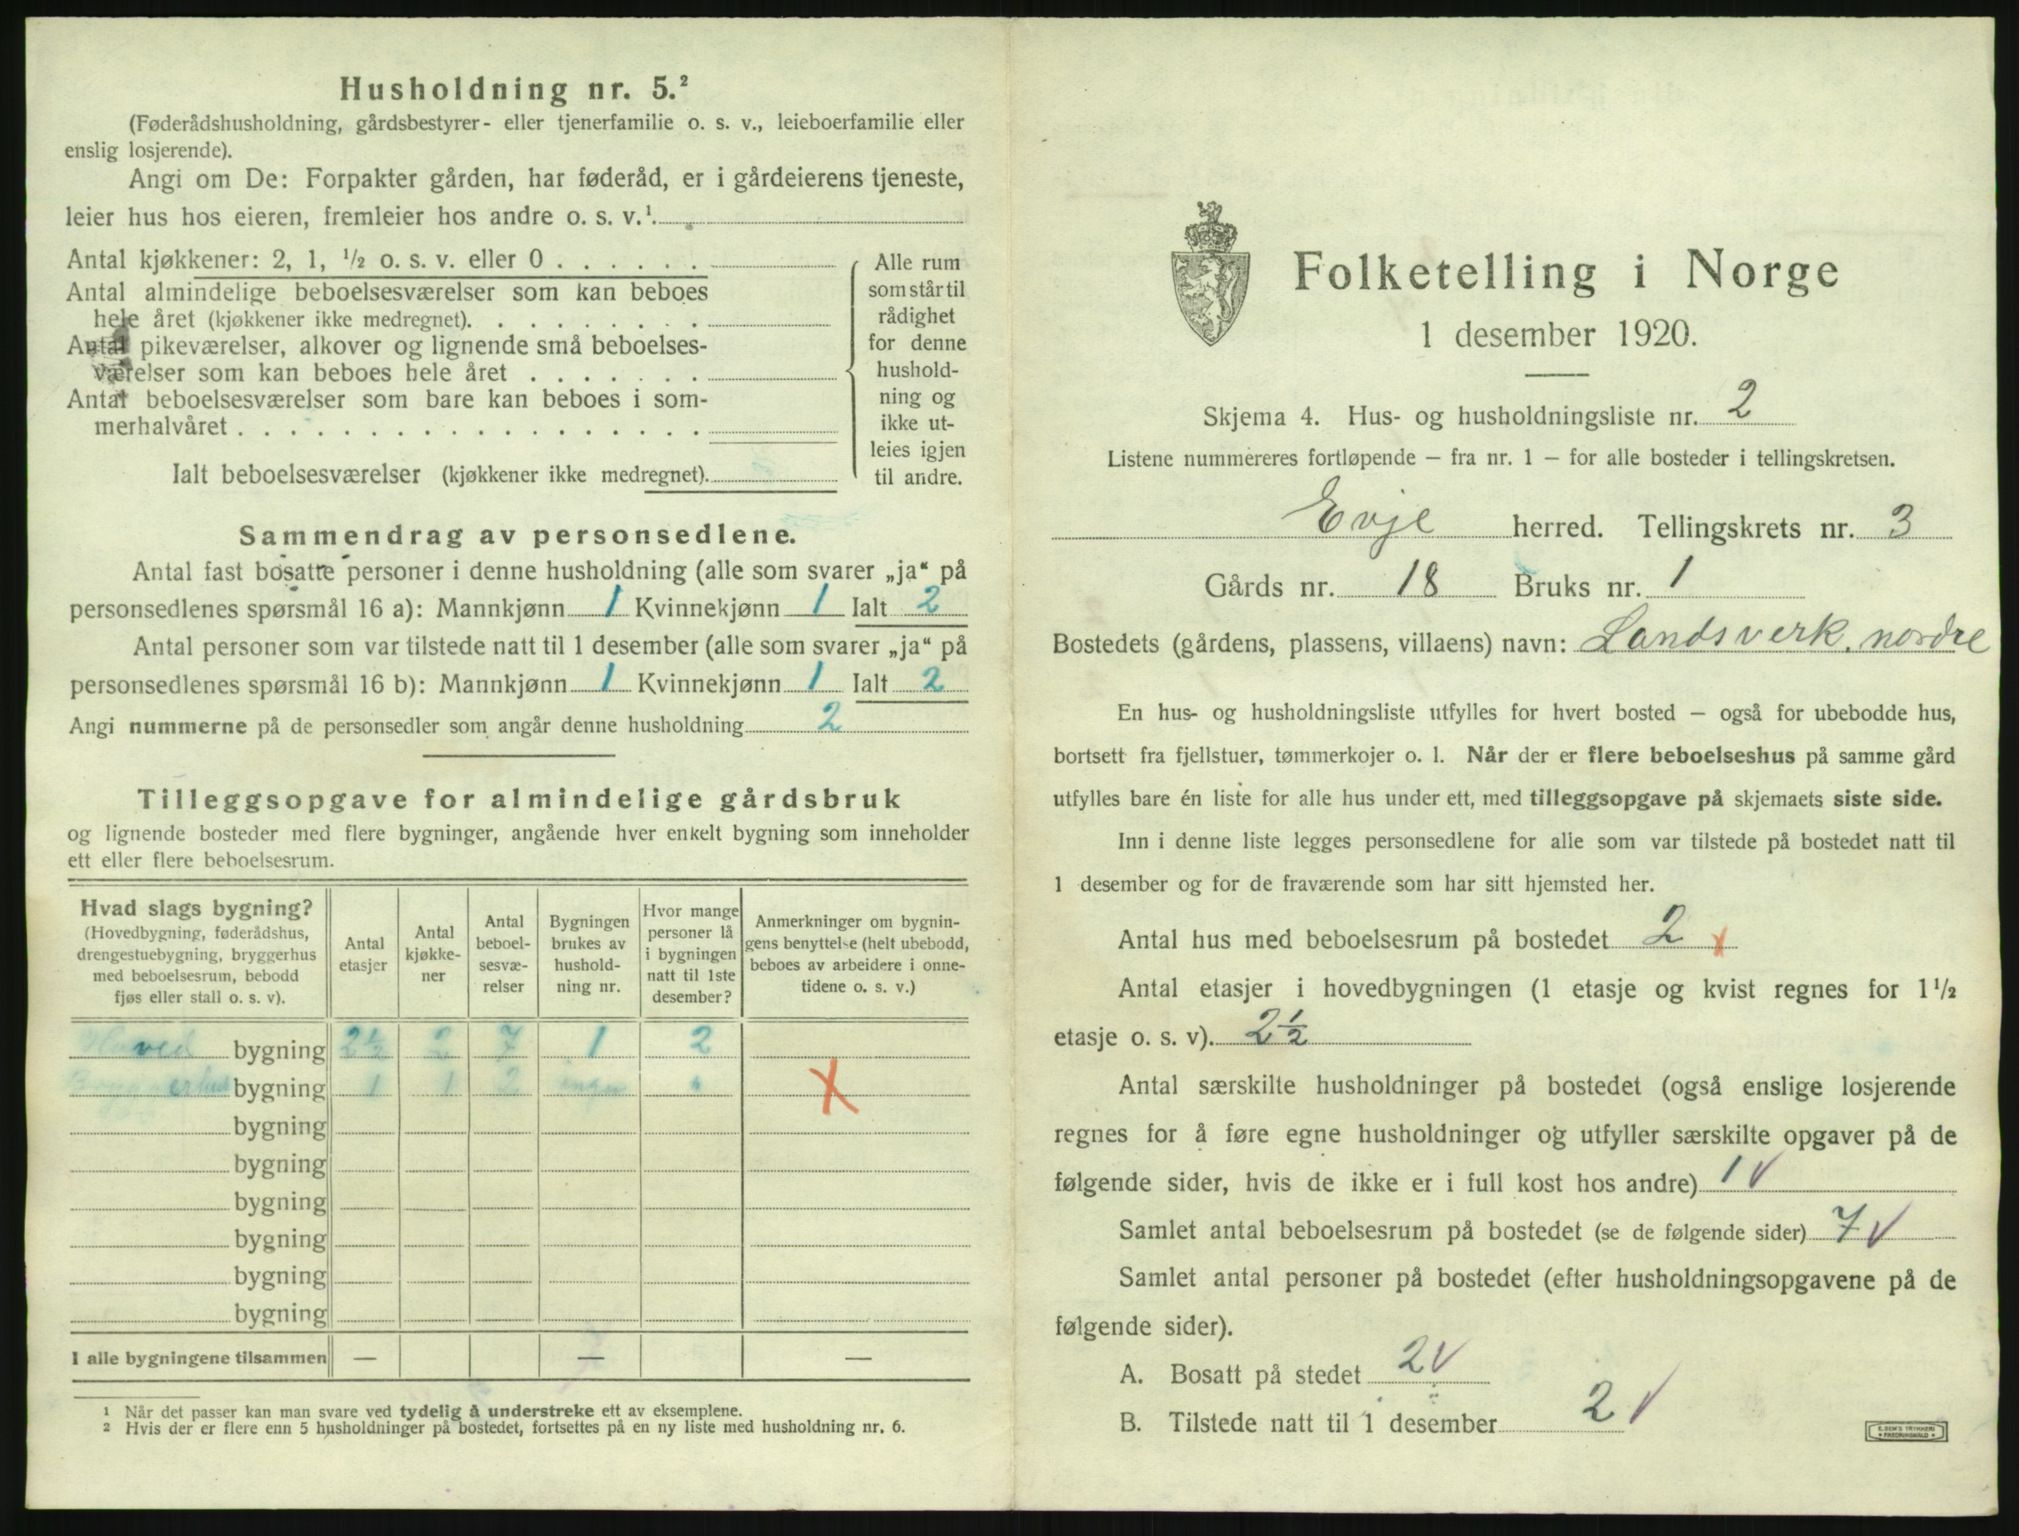 Husholdning nr. 5.²
(Føderådshusholdning, gårdsbestyrer- eller tjenerfamilie o. s. v., leieboerfamilie eller
enslig losjerende).
Angi om De: Forpakter gården, har føderåd, er i gårdeierens tjeneste,
leier hus hos eieren, fremleier hos andre o. s. v.¹
Antal kjøkkener: 2, 1, ½ o. s. v. eller 0 . . . . . .
Antal almindelige beboelsesværelser som kan beboes
hele året (kjøkkener ikke medregnet). . . . . . . . .
Antal pikeværelser, alkover og lignende små beboelses-
værelser som kan beboes hele året . . . . . . .
Antal beboelsesværelser som bare kan beboes i som-
merhalvåret . . . . . . . . . . . . . . . . . .
Ialt beboelsesværelser (kjøkkener ikke medregnet).
Alle rum
som står til
rådighet
for denne
hushold-
ning og
ikke ut-
leies igjen
til andre.
Sammendrag av personsedlene.
Antal fast bosatte personer i denne husholdning (alle som svarer „ja“ på
personsedlenes spørsmål 16 a): Mannkjønn 1 Kvinnekjønn 1 Ialt 2
Antal personer som var tilstede natt til 1 desember (alle som svarer „ja“ på
personsedlenes spørsmål 16 b): Mannkjønn 1 Kvinnekjønn 1 Ialt 2
Angi nummerne på de personsedler som angår denne husholdning 2
Tilleggsopgave for almindelige gårdsbruk
og lignende bosteder med flere bygninger, angående hver enkelt bygning som inneholder
ett eller flere beboelsesrum.
Hvad slags bygning?
(Hovedbygning, føderådshus,
drengestuebygning, bryggerhus
med beboelsesrum, bebodd
fjøs eller stall o. s. v).
Antal
etasjer
Antal
kjøkke-
ner
Antal
beboel-
sesvæ-
relser
Bygningen
brukes av
hushold-
ning nr.
Hvor mange
personer lå
i bygningen
natt til 1ste
desember?
Anmerkninger om bygnin-
gens benyttelse (helt ubebodd,
beboes av arbeidere i onne-
tidene o. s. v.)
Hoved bygning 2½ 2 7 1 2
Bryggerhus bygning 1 1 2 ingen X
bygning
bygning
bygning
bygning
bygning
bygning
I alle bygningene tilsammen — — —
¹ Når det passer kan man svare ved tydelig å understreke ett av eksemplene.
² Hvis der er flere enn 5 husholdninger på bostedet, fortsettes på en ny liste med husholdning nr. 6.
Folketelling i Norge
1 desember 1920.
Skjema 4. Hus- og husholdningsliste nr. 2
Listene nummereres fortløpende — fra nr. 1 — for alle bosteder i tellingskretsen.
Evje herred. Tellingskrets nr. 3
Gårds nr. 18 Bruks nr. 1
Bostedets (gårdens, plassens, villaens) navn: Landsverk, nordre
En hus- og husholdningsliste utfylles for hvert bosted — også for ubebodde hus,
bortsett fra fjellstuer, tømmerkojer o. l. Når der er flere beboelseshus på samme gård
utfylles bare én liste for alle hus under ett, med tilleggsopgave på skjemaets siste side.
Inn i denne liste legges personsedlene for alle som var tilstede på bostedet natt til
1 desember og for de fraværende som har sitt hjemsted her.
Antal hus med beboelsesrum på bostedet 2 x
Antal etasjer i hovedbygningen (1 etasje og kvist regnes for 1½
etasje o. s. v). 2½
Antal særskilte husholdninger på bostedet (også enslige losjerende
regnes for å føre egne husholdninger og utfyller særskilte opgaver på de
følgende sider, hvis de ikke er i full kost hos andre) 1 √
Samlet antal beboelsesrum på bostedet (se de følgende sider) 7 √
Samlet antal personer på bostedet (efter husholdningsopgavene på de
følgende sider).
A. Bosatt på stedet 2 √
B. Tilstede natt til 1 desember 2 √